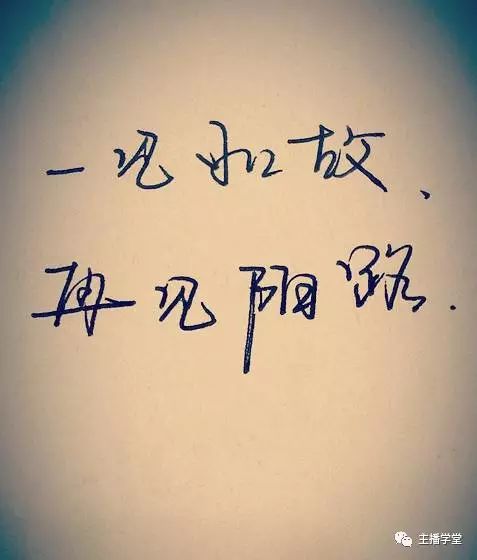 一见如故、
再见陌路.
主播学堂